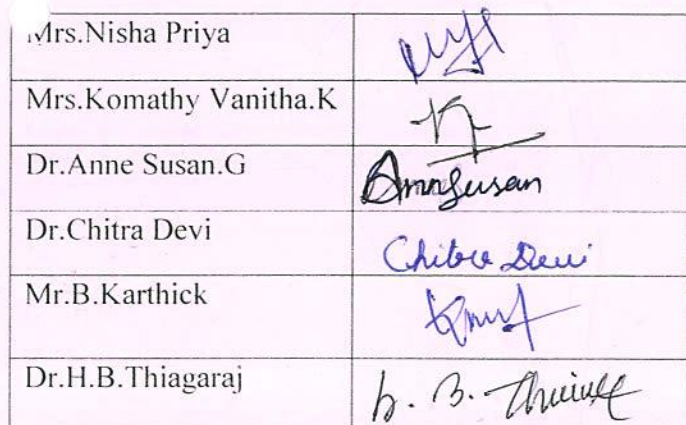 Mrs.Nisha Priya
Mrs.Komathy Vanitha.K
Dr.Anne Susan.G
AnneSusan
Dr.Chitra Devi
Chitra Devi
Mr.B.Karthick
Dr.H.B.Thiagaraj
h. B.